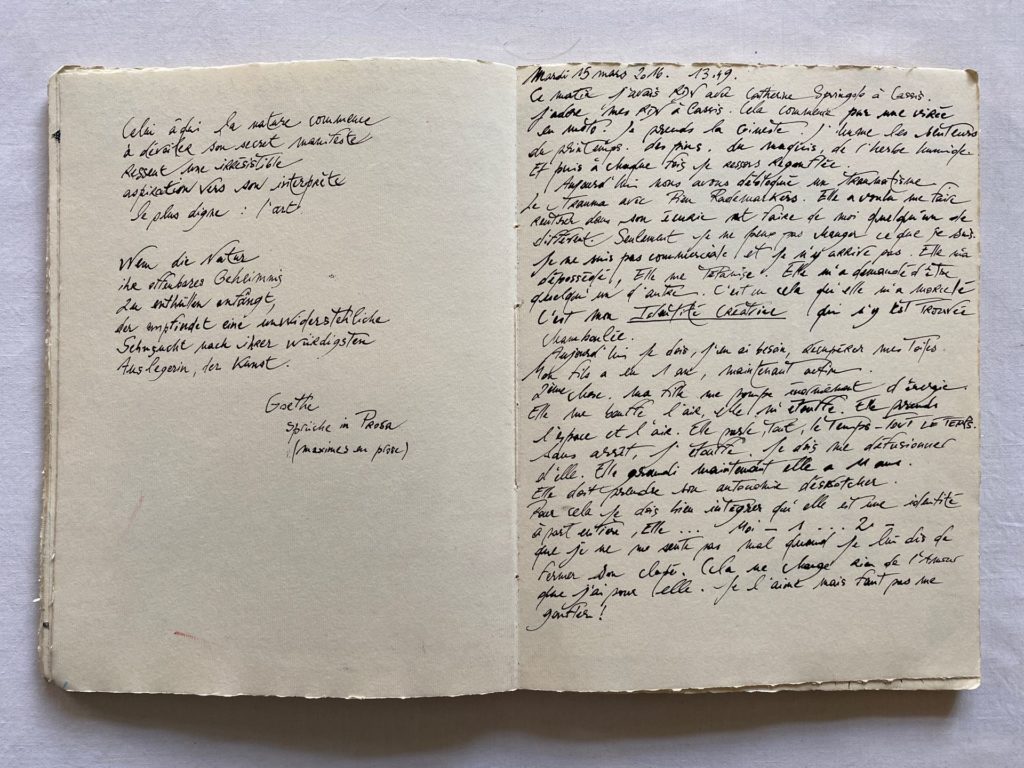 Celui à qui la nature commence
à dévoiler son secret manifeste
Ressent une irrésistible
aspiration vers son interprète
le plus digne : l'art
Wem die Natur
ihr offenbares Geheimnis
zu enthüllen anfängt,
der empfindet eine unwiderstehliche
Sehnsucht nach ihrer würdigsten
Auslegerin, der Kunst.
Goethe
Sprüche in Prosa
(maximes en prose)
Mardi 15 mars 2016. 13.49.
Ce matin j'avais RDV avec Catherine à Cassis.
J'adore mes RDV à Cassis. Cela commence par une virée
en moto. Je prends la Gineste. J'hume les senteurs
du printemps. Des pins. Du maquis, de l'herbe humide.
Et puis à chaque fois je ressors
Aujourd'hui nous avons un traumatisme
Le Trauma avec Pien Rademakers. Elle a voulu me faire
rentrer dans son et faire de moi quelqu'un de
différent. Seulement je ne peux pas changer ce que je suis.
Je ne suis pas commerciale et je n'y arrive pas. Elle m'a
dépossédé, Elle me . Elle m'a demandé d'être
quelqu'un d'autre. C'est en cela qu'elle m'a
C'est mon Identité Créative qui s'y est TROUVÉE
chamboulée.
Aujourd'hui je dois, j'en ai besoin, RÉCUPÉRER mes toiles.
Mon fils a eu 1 an, maintenant
2ème chose. Ma fille me pompe énormément d'énergie
Elle me bouffe l'air, elle m'étouffe. Elle prends
l'espace et l'air. Elle parle, tout le Temps - TOUT LE TEMPS.
Sans arrêt, j'étouffe. Je dois me défusionner
d'elle. Elle grandi maintenant elle a 11 ans.
Elle doit prendre son autonomie
Pour cela je dois bien intégrer qu'elle est une identité
à part entière, Elle ... Moi - 1 ... 2.
que je ne me sente pas mal quand je lui dis de
fermer son clapet. Cela ne change rien de l'Amour
que j'ai pour elle. Je l'aime mais faut pas me
gonfler !